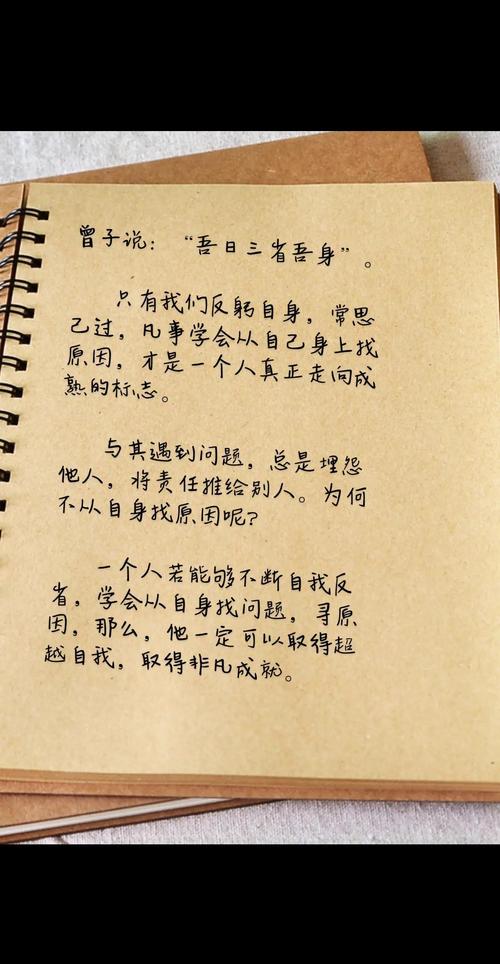 曾子说：“吾日三省吾身”。
只有我们反躬自身，常思
己过，凡事学会从自己身上找
原因，才是一个人真正走向成
熟的标志。
与其遇到问题，总是埋怨
他人，将责任推给别人。为何
不从自身找原因呢？
一个人若能够不断自我反
省，学会从自身找问题，寻原
因，那么，他一定可以取得超
越自我，取得非凡成就。